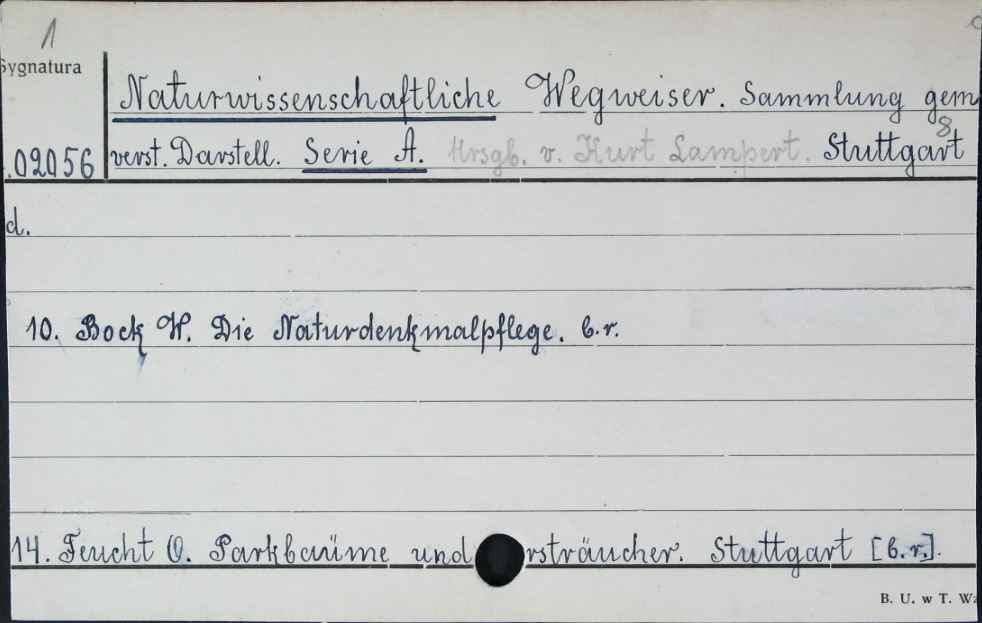 1
Sygnatura
Naturwissenschaftliche Wegweiser. Sammlung gem
8
.02056 verst. Darstell. Serie A. Hrsgb. v. Kurt Lampert. Stuttgart
d.
10. Bock W. Die Naturdenkmalpflege. b.r.
14. Feucht O. Parkbäume und rsträucher. Stuttgart [b.r.].
B. U. w T. Wa